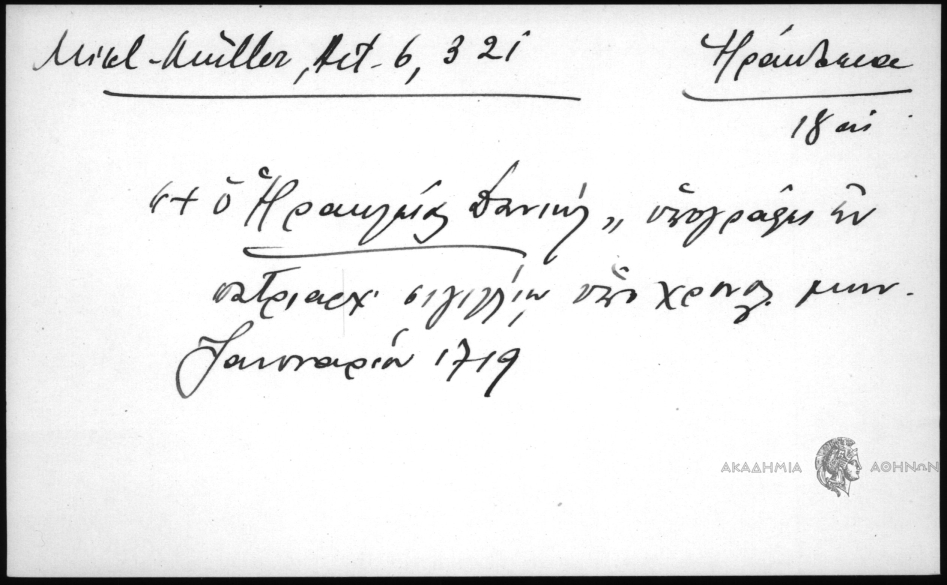 Mikl-Müller, Act. 6, 321
Ηράκλεια
18 αι
"+ ὁ Ἡρακλείας Δανιήλ„ ὑπογράφει ἐν
πατριαρχ. σιγιλλίῳ ὑπὸ χρονολ. μην.
Ἰανουαρίου 1719
ΑΚΑΔΗΜΙΑ ΑΘΗΝΩΝ